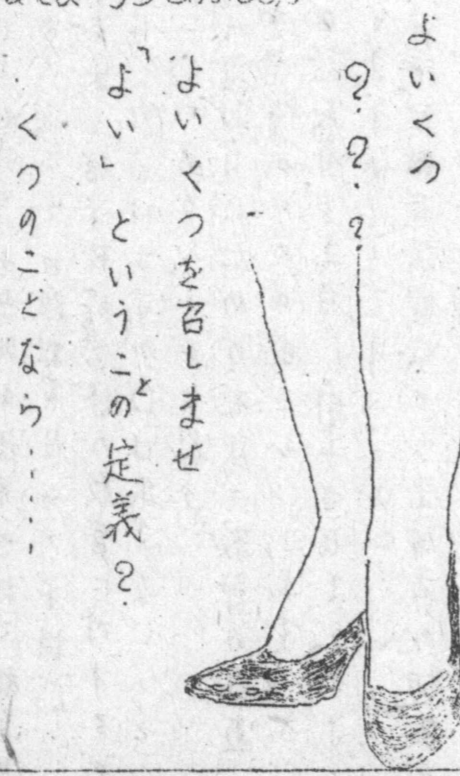 よいくつ
?.?.?
よいくつを召しませ
「よい」ということの定義?
くつのことなら……